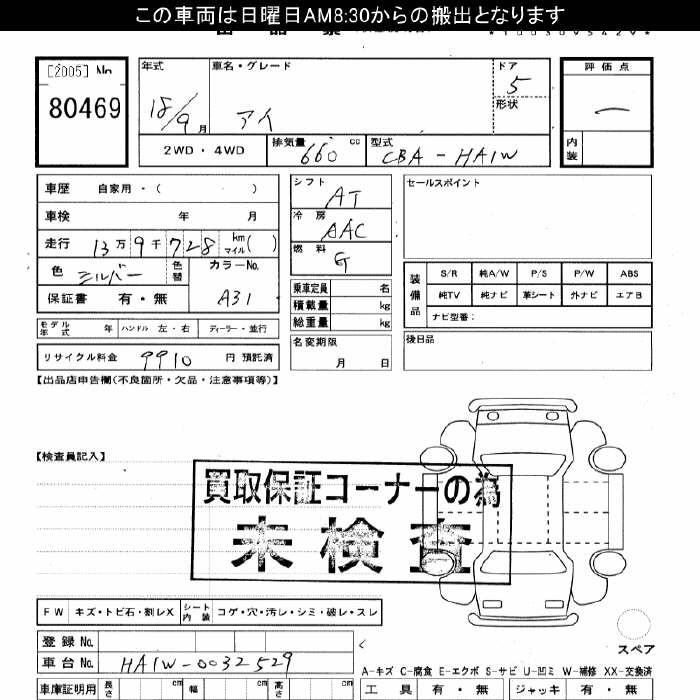 この車両は日曜日AM8:30からの搬出となります
[2005] No.
80469
年式 車名・グレード ドア 評価点
18/9月 アイ 5 ー
形状
2WD・4WD 排気量 660 cc 型式 CBA-HA1W 内装
車歴 自家用・( )
車検 年 月
走行 13万9千728 km マイル( )
色 シルバー 色替 カラーNo. A31
保証書 有・無
シフト AT
冷房 AAC
燃料 G
乗車定員 名
積載量 kg
総重量 kg
名変期限 月 日
セールスポイント
装備品
S/R 純A/W P/S P/W ABS
純TV 純ナビ 革シート 外ナビ エアB
ナビ型番:
後日品
モデル年式 年 ハンドル 左・右 ディーラー・並行
リサイクル料金 9910 円 預託済
【出品店申告欄(不良箇所・欠品・注意事項等)】
【検査員記入】
買取保証コーナーの為
未検査
FW キズ・トビ石・割レX シート内装 コゲ・穴・汚レ・シミ・破レ・スレ
登録No.
車台No. HA1W-0032529
スペア
A-キズ C-腐食 E-エクボ S-サビ U-凹ミ W-補修 XX-交換済
車庫証明用 長さ cm 幅 cm 高さ cm 工具 有・無 ジャッキ 有・無